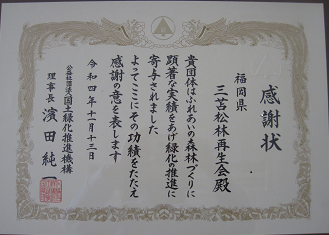 感謝状
福岡県
三苫松林再生会殿
貴団体はふれあいの森林づくりに
顕著な実績をあげ緑化の推進に
寄与されました
よってここにその功績をたたえ
感謝の意を表します
令和四年十一月十三日
公益社団法人国土緑化推進機構
理事長 濱田純一